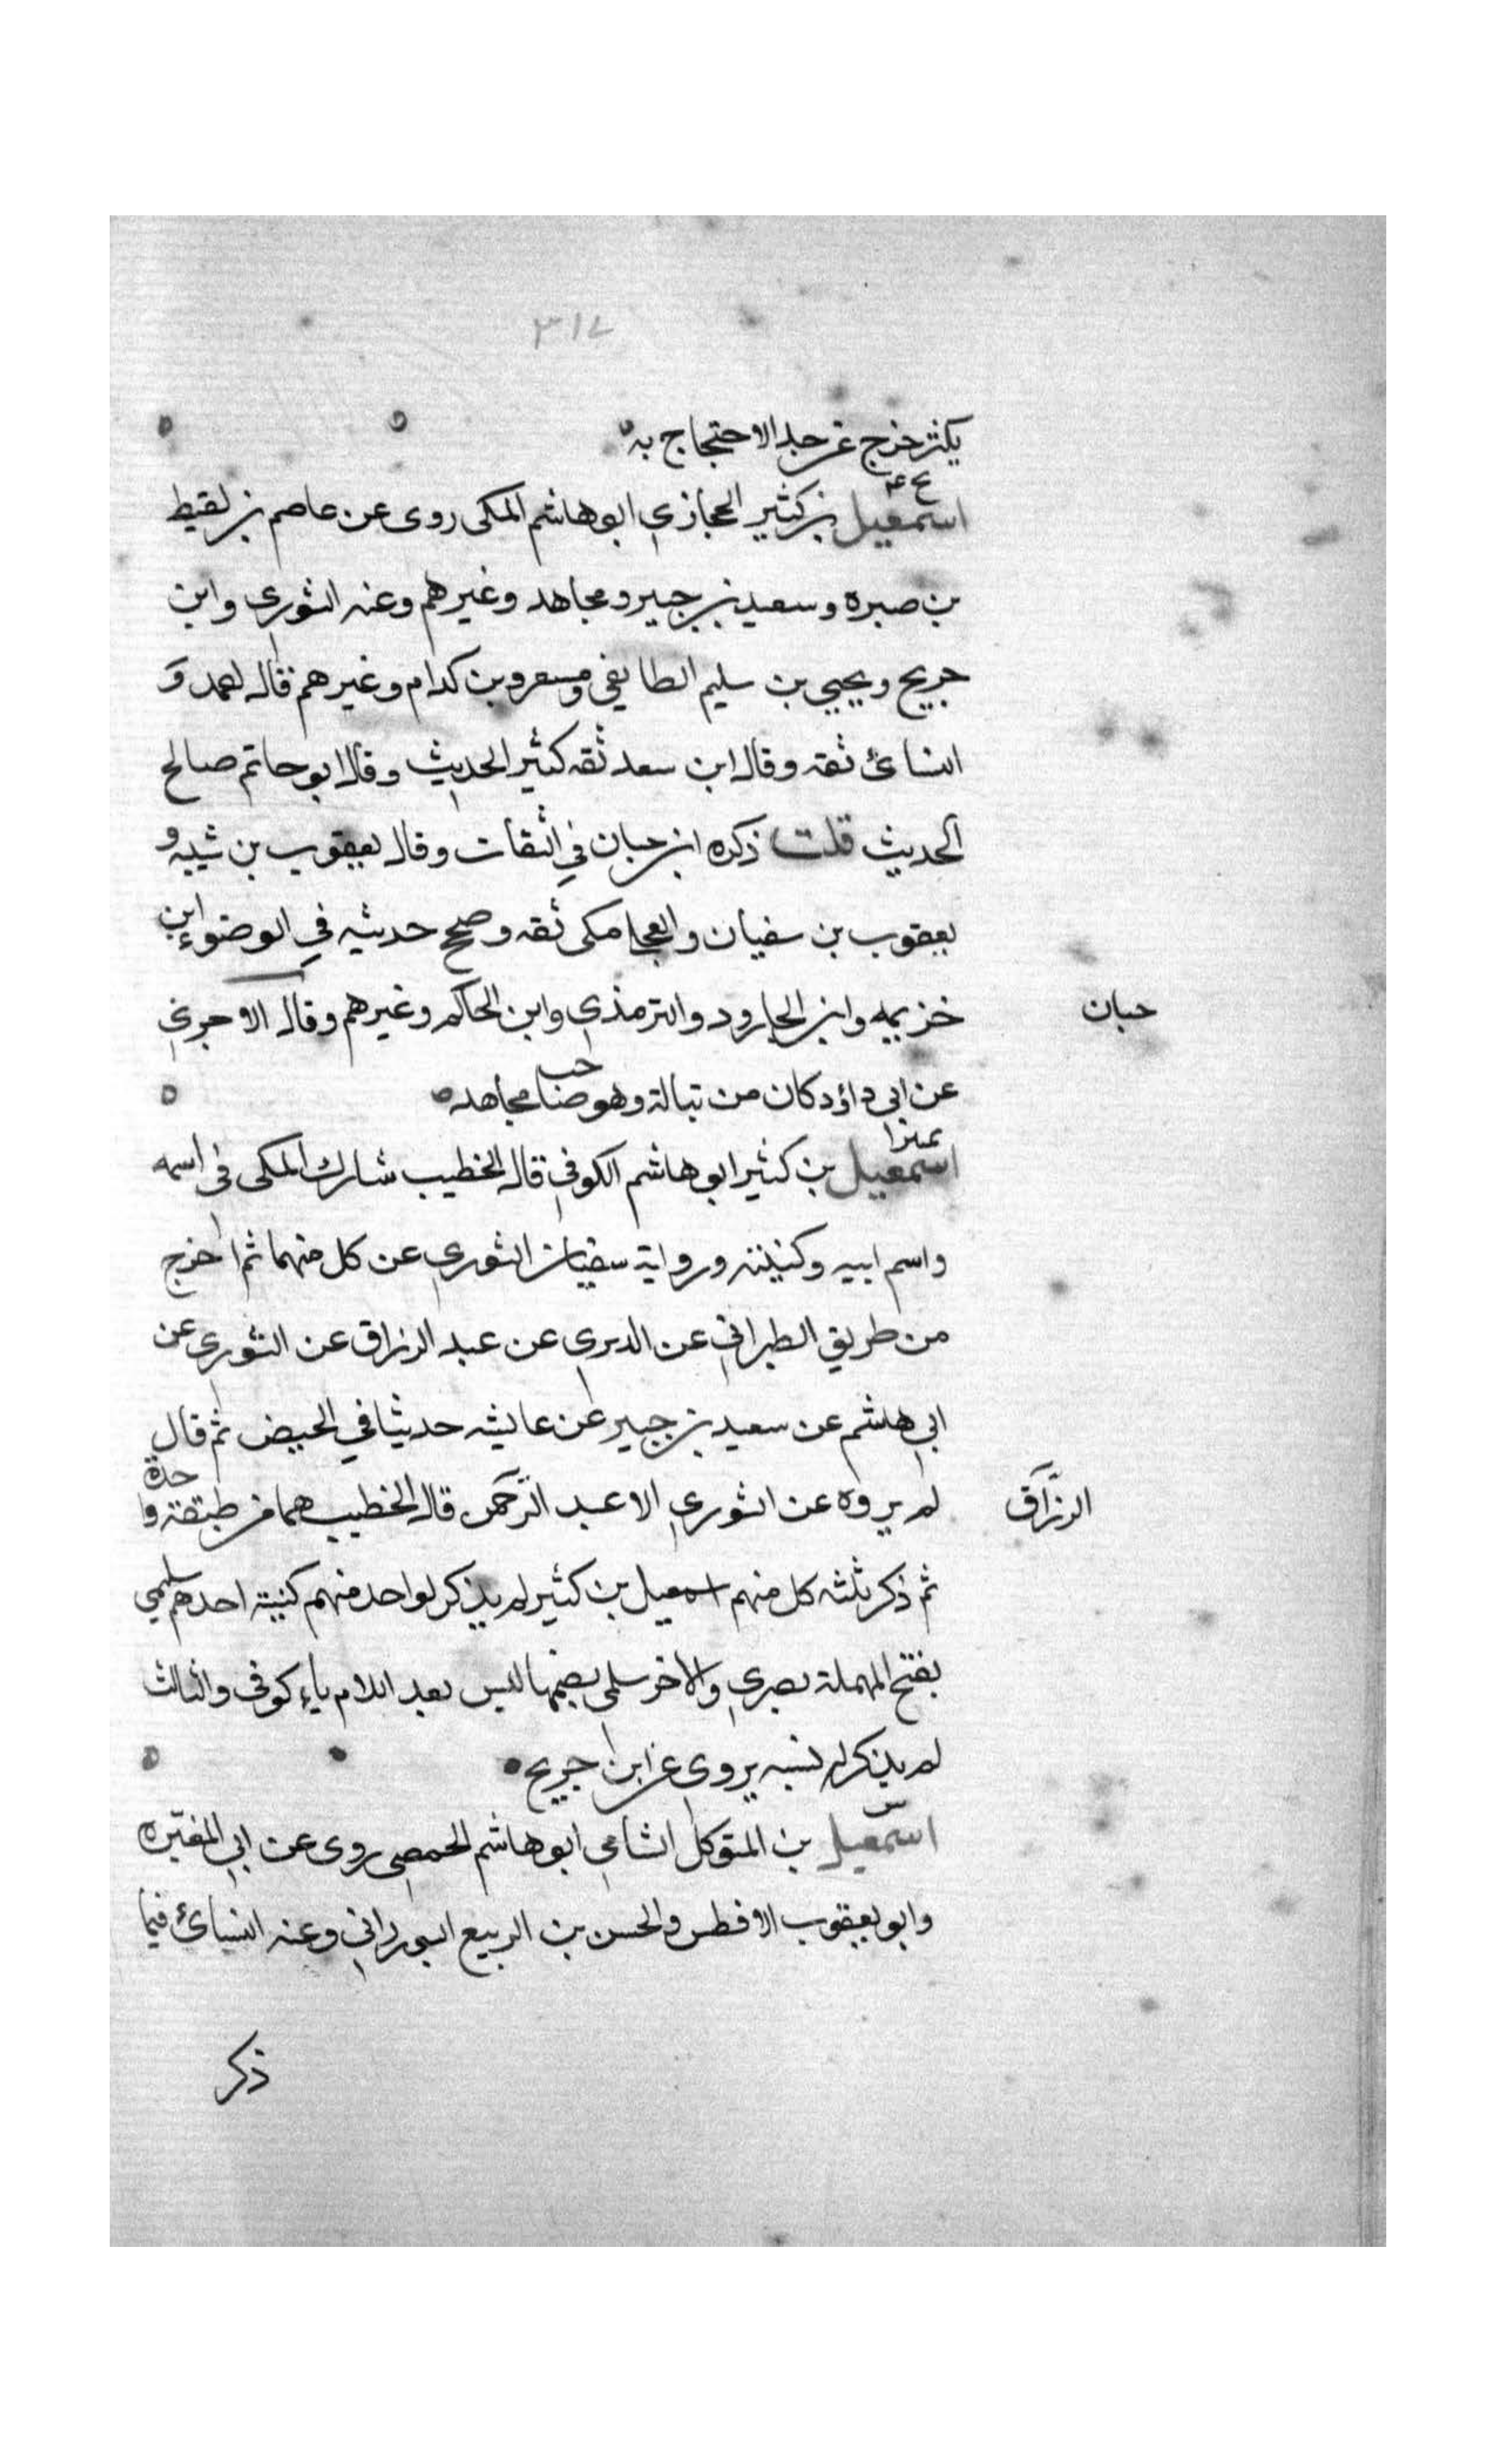 ٣١٧
يكثر خرج عن حد الاحتجاج به
بخ ٤
اسمعيل بن كثير الحجازي ابو هاشم المكى روى عن عاصم بن لقيط
بن صبره وسعيد بن جبير ومجاهد وغيرهم وعنه الثورى وابن
جريج ويحيى بن سليم الطايفي ومسعر وبن كدام وغيرهم قال احمد و
النسائ ثقه وقال ابن سعد ثقه كثير الحديث وقال ابو حاتم صالح
الحديث قلت ذكره ابن حبان في الثقات وقال يعقوب بن شيبه و
يعقوب بن سفيان والعجلي مكى ثقه وصحح حديثه في الوضوء ابن
خزيمه وابن الجارود والترمذي وابن الحاكم وغيرهم وقال الاجري
حبان
عن ابي داؤد كان من تبالة وهو صاحب مجاهد
تمييز
اسمعيل بن كثير ابو هاشم الكوفي قال الخطيب شارك المكى فى اسمه
واسم ابيه وكنيته ورواية سفيان الثوري عن كل منهما ثم اخرج
من طريق الطبراني عن الدبري عن عبد الرزاق عن الثوري عن
ابي هاشم عن سعيد بن جبير عن عايشه حديثا في الحيض ثم قال
لم يروه عن الثوري الا عبد الرحمن قال الخطيب هما من طبقة واحدة
الرزاق
ثم ذكر ثلثه كل منهم اسمعيل بن كثير لم يذكر لواحد منهم كنيته احدهم سليمي
بفتح المهملة بصري والاخر سلمي بضمها ليس بعد اللام ياء كوفى والثالث
لم يذكر له نسبه يروى عن ابن جريج
س
اسمعيل بن المتوكل الشامي ابو هاشم الحمصى روى عن ابي المغيره
وابو يعقوب الافطس والحسن بن الربيع البوراني وعنه النسائ فيما
ذكر